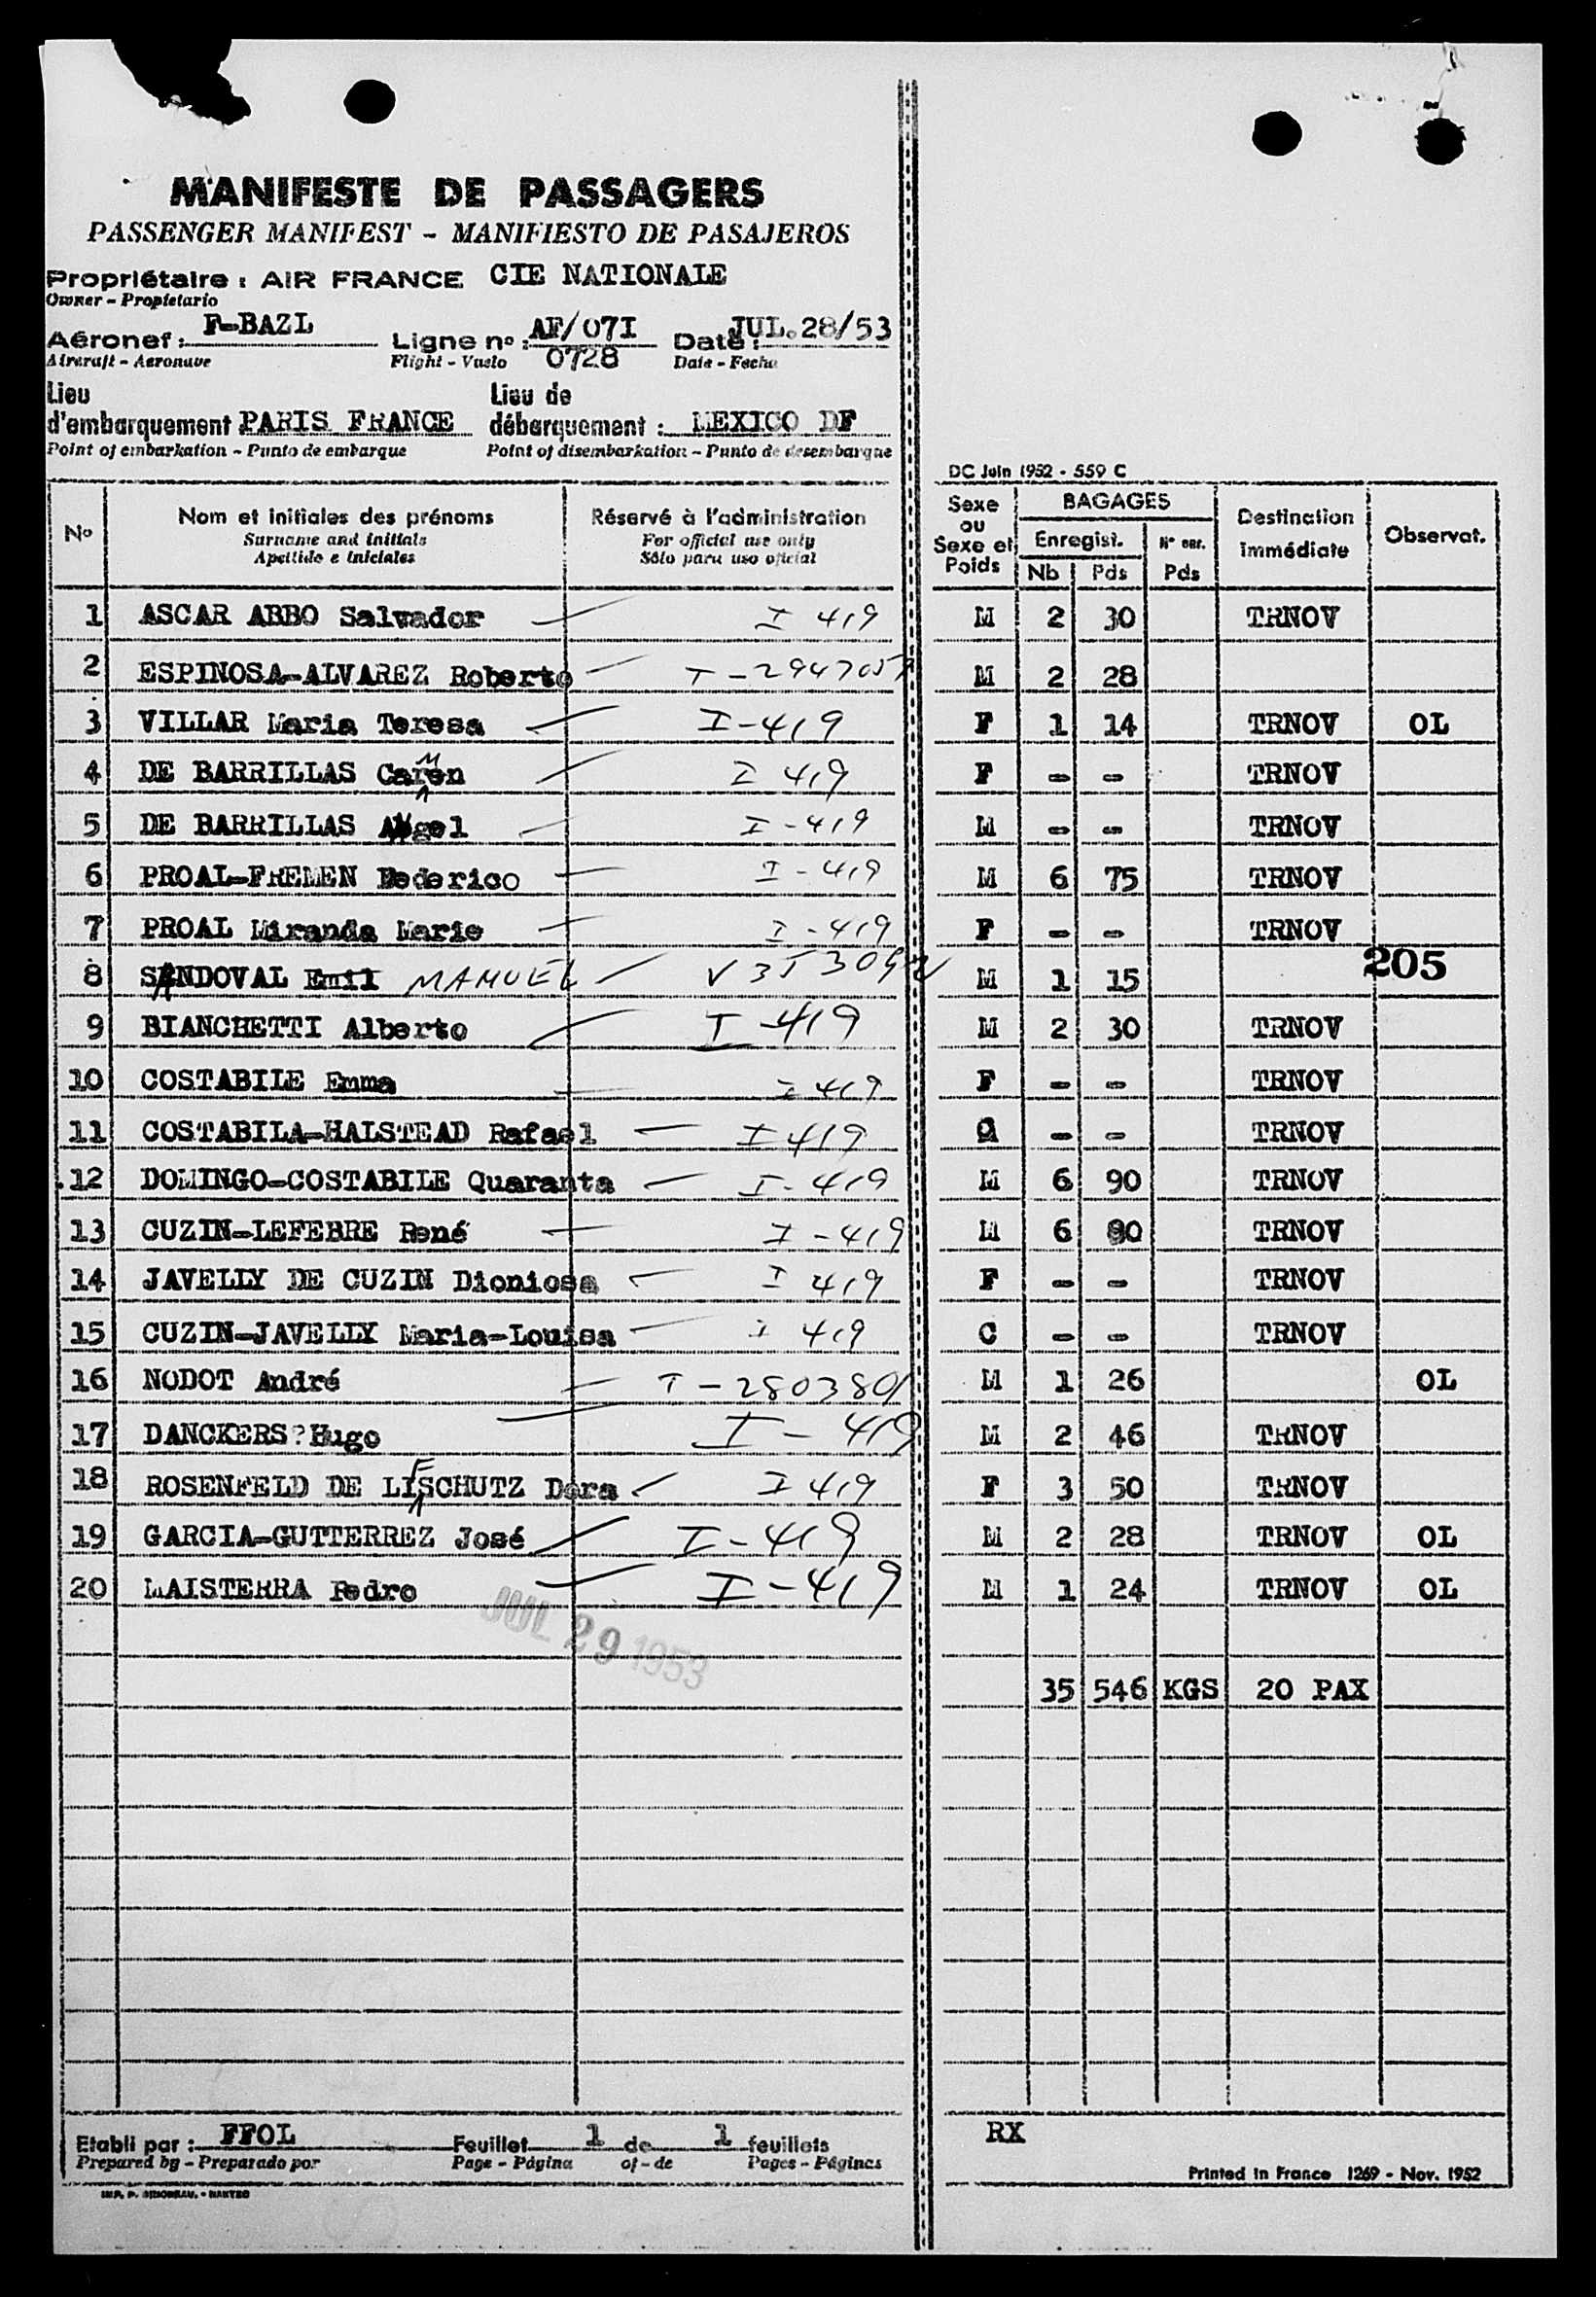 MANIFESTE DE PASSAGERS
PASSENGER MANIFEST - MANIFIESTO DE PASAJEROS
Propriétaire : AIR FRANCE CIE NATIONALE
Owner - Propietario
Aéronef : F-BAZL Ligne no : AF/07I Date : JUL.28/53
Aircraft - Aeronave Flight - Vuelo 0728 Date - Fecha
Lieu Lieu de
d'embarquement PARIS FRANCE débarquement : MEXICO DF
Point of embarkation - Punto de embarque Point of disembarkation - Punto de desembarque
DC Juin 1952 - 559 C
No Nom et initiales des prénoms Réservé à l'administration Sexe ou Sexe et Poids BAGAGES Destination immédiate Observat.
Surname and initials For official use only Enregist. N° enr.
Apellido e iniciales Sólo para uso oficial Nb Pds Pds
1 ASCAR ABBO Salvador I 419 M 2 30 TRNOV
2 ESPINOSA-ALVAREZ Roberto T-2947057 M 2 28
3 VILLAR Maria Teresa I-419 F 1 14 TRNOV OL
4 DE BARRILLAS Carmen I 419 F - - TRNOV
5 DE BARRILLAS Angel I-419 M - - TRNOV
6 PROAL-FREMEN Federico I-419 M 6 75 TRNOV
7 PROAL Miranda Marie I-419 F - - TRNOV
205
8 SANDOVAL Emil MANUEL M 1 15
9 BIANCHETTI Alberto I-419 M 2 30 TRNOV
10 COSTABILE Emma I 419 F - - TRNOV
11 COSTABILA-HALSTEAD Rafael I 419 - - TRNOV
12 DOMINGO-COSTABILE Quaranta I-419 M 6 90 TRNOV
13 CUZIN-LEFEBRE René I-419 M 6 90 TRNOV
14 JAVELLY DE CUZIN Dioniosa I 419 F - - TRNOV
15 CUZIN-JAVELLY Maria-Louisa I 419 C - - TRNOV
16 NODOT André T-2803801 M 1 26 OL
17 DANCKERS?Hugo I-419 M 2 46 TRNOV
18 ROSENFELD DE LIFSCHUTZ Dora I 419 F 3 50 TRNOV
19 GARCIA-GUTTERREZ José I-419 M 2 28 TRNOV OL
20 MAISTERRA Pedro I-419 M 1 24 TRNOV OL
JUL 29 1953
35 546 KGS 20 PAX
Etabli par : FFOL Feuillet 1 de 1 feuillets RX
Prepared by - Preparado por Page - Página of - de Pages - Páginas
Printed in France 1269 - Nov. 1952